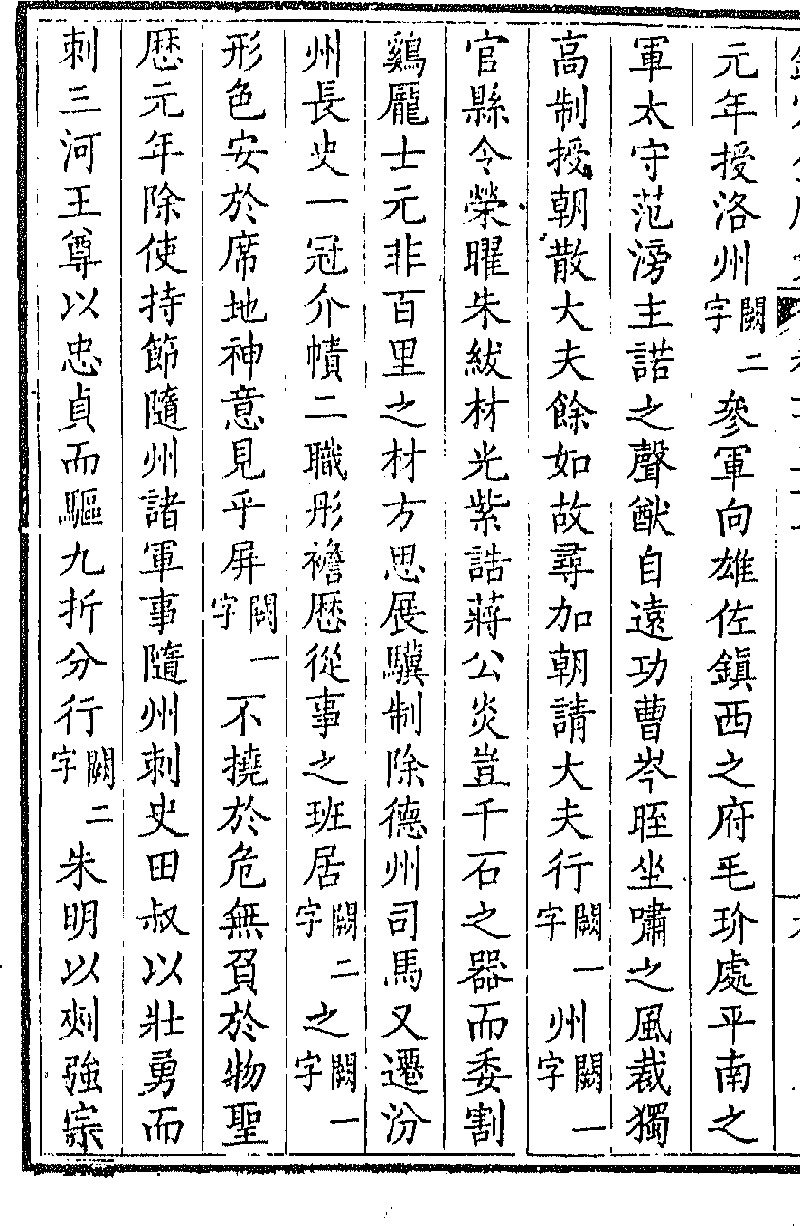 元年授洛州闕二字參軍向雄佐鎭西之府毛玠處平南之
軍太守范滂主諾之聲猷自遠功曹岑晊坐嘯之風裁獨
高制授朝散大夫餘如故尋加朝請大夫行闕一字州闕一字
官縣令榮曜朱紱材光紫誥蔣公炎豈千石之器而委割
鷄龎士元非百里之材方思展驥制除德州司馬又遷汾
州長史一冠介幘二職彤襜歷從事之班居闕二字之闕一字
形色安於席地神意見乎屏闕一字不撓於危無負於物聖
歷元年除使持節隨州諸軍事隨州刺史田叔以壯勇而
刺三河王尊以忠貞而驅九折分行闕二字朱明以剡強宗